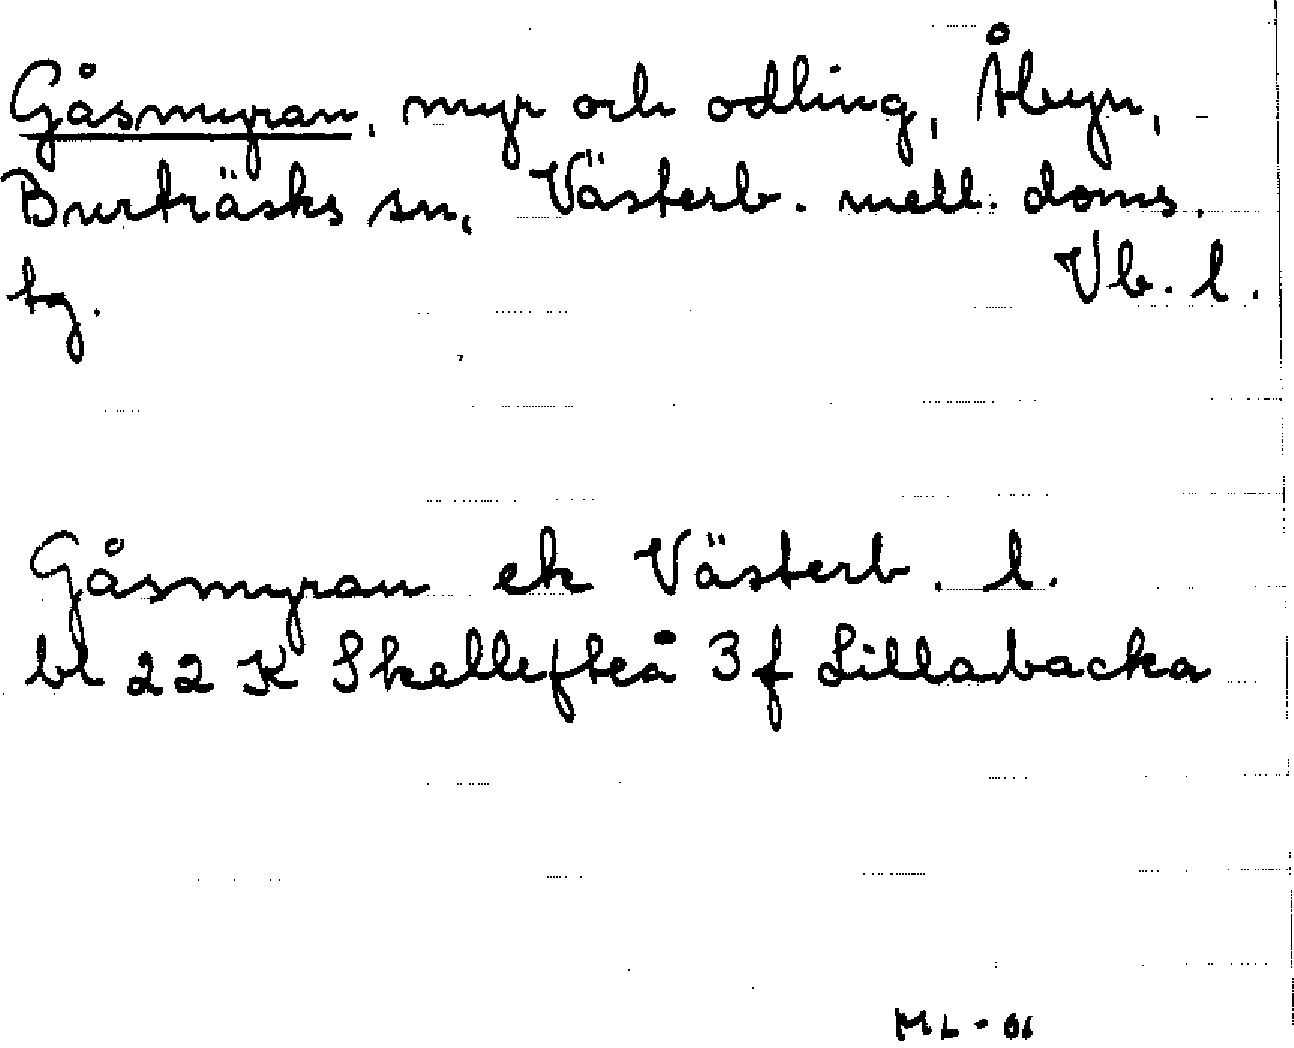 Gåsmyran, myr och odling, Åbyn,
Burträsks sn, Västerb. mell. doms.
tg. Vb. l.
Gåsmyran ek Västerb. l.
bl 22 K Skellefteå 3 f Lillabacka
ML - 06